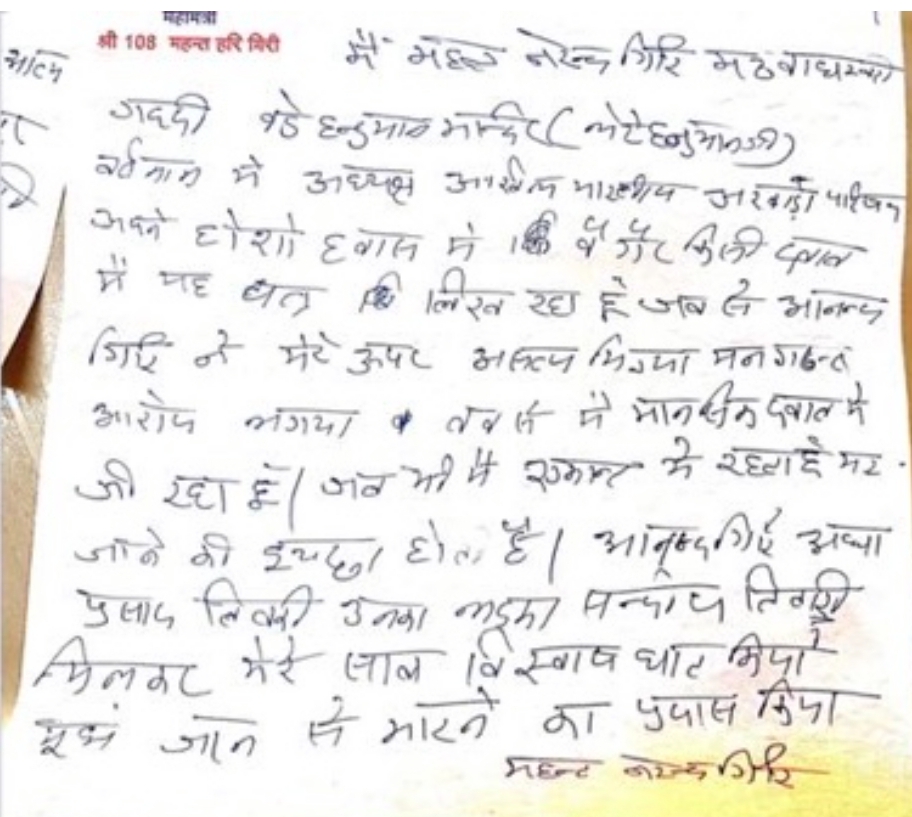 महामंत्री
श्री 108 महन्त हरि गिरी
1
मैं महन्त नरेन्द्र गिरि मठ बाघम्बरी
गद्दी बडे हनुमान मन्दिर (लेटे हनुमानजी)
वर्तमान मे अध्यक्ष अखिल भारतीय अखाड़ा परिषद
अपने होशो हवास मे बगैर किसी दबाव
में यह पत्र लिख रहा हूँ जब से आनन्द
गिरि ने मेरे ऊपर असत्य मिथ्या मनगढन्त
आरोप लगाया तब से मै मानसिक दबाव मे
जी रहा हूँ। जब भी मै एकान्त मे रहता हूँ मर
जाने की इच्छा होती है। आनन्द गिरि आद्या
प्रसाद तिवारी उनका लड़का सन्दीप तिवारी
मिलकर मेरे साथ विस्वासघात किया
मुझे जान से मारने का प्रयास किया
महन्त नरेन्द्र गिरि